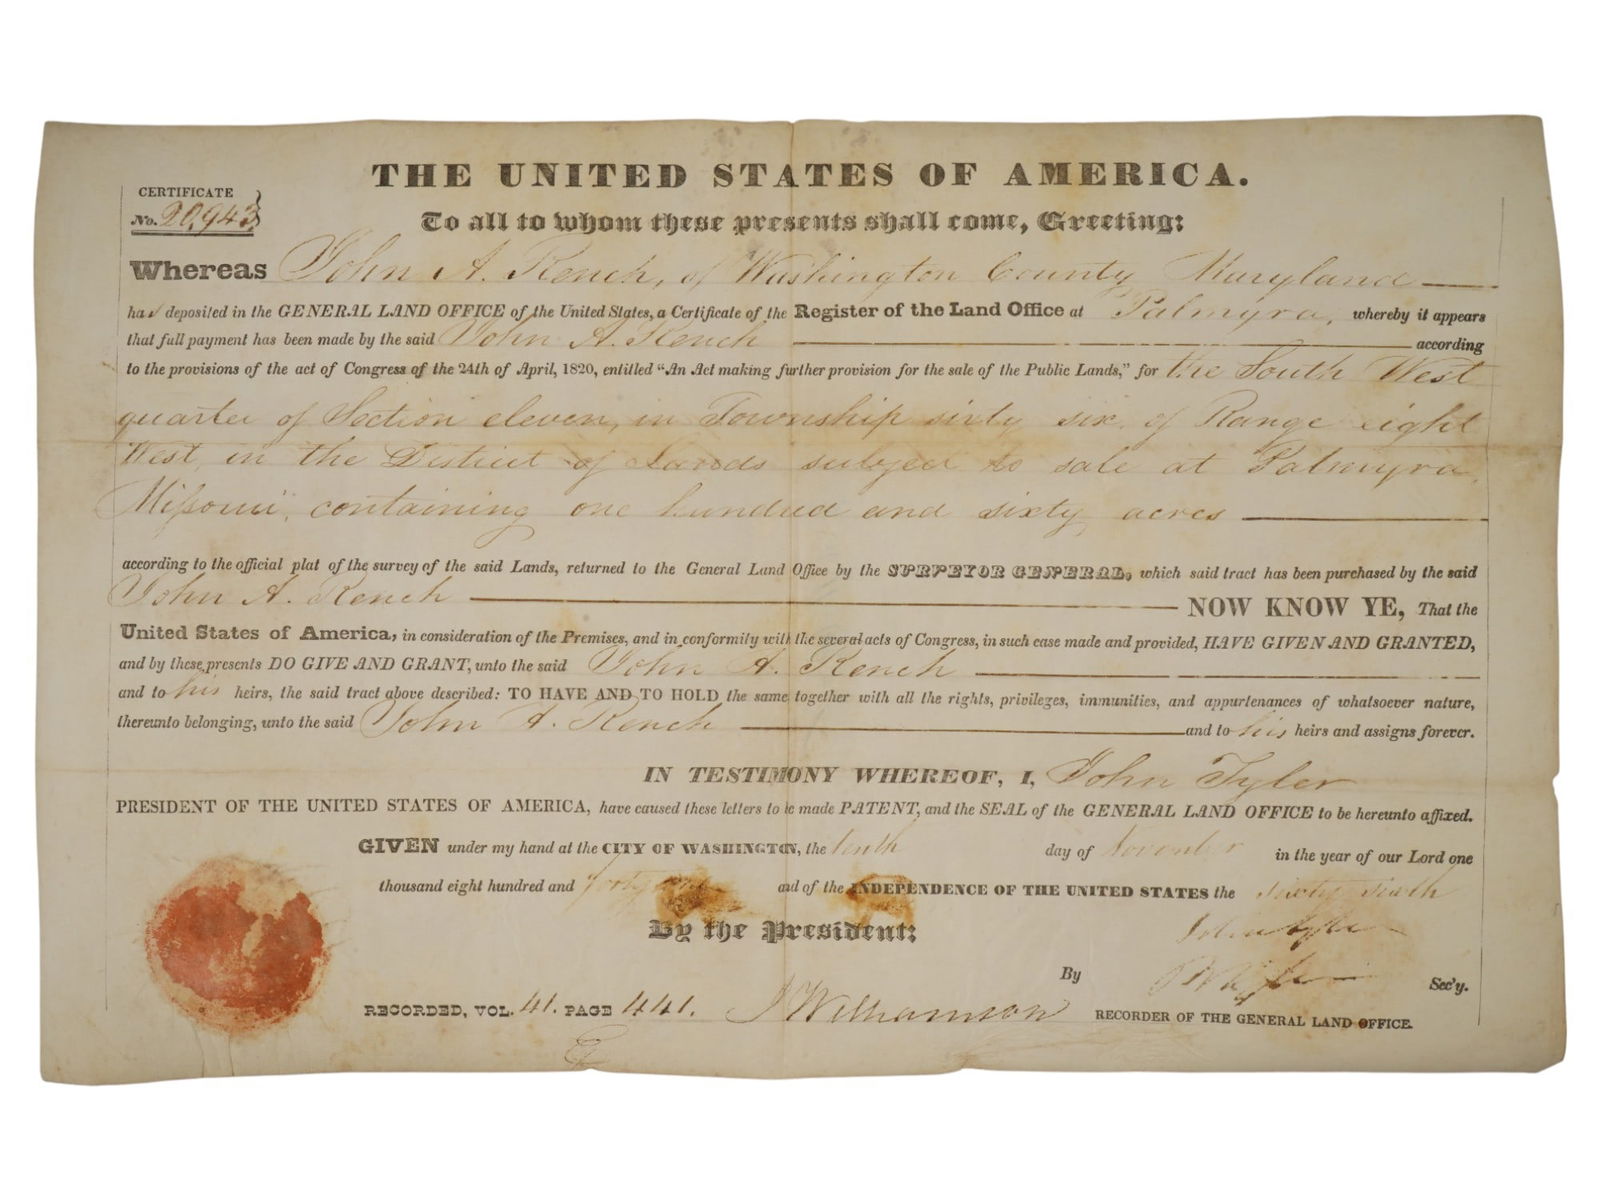 THE UNITED STATES OF AMERICA.
CERTIFICATE
No. 20,943
To all to whom these presents shall come, Greeting:
Whereas John A. Rench, of Washington County Maryland
has deposited in the GENERAL LAND OFFICE of the United States, a Certificate of the Register of the Land Office at Palmyra, whereby it appears
that full payment has been made by the said John A. Rench according
to the provisions of the act of Congress of the 24th of April, 1820, entitled "An Act making further provision for the sale of the Public Lands," for the South West
quarter of Section eleven, in Township sixty six, of Range eight
West, in the District of Lands subject to sale at Palmyra,
Missouri, containing one hundred and sixty acres
according to the official plat of the survey of the said Lands, returned to the General Land Office by the SURVEYOR GENERAL, which said tract has been purchased by the said
John A. Rench NOW KNOW YE, That the
United States of America, in consideration of the Premises, and in conformity with the several acts of Congress, in such case made and provided, HAVE GIVEN AND GRANTED,
and by these presents DO GIVE AND GRANT, unto the said John A. Rench
and to his heirs, the said tract above described: TO HAVE AND TO HOLD the same together with all the rights, privileges, immunities, and appurtenances of whatsoever nature,
thereunto belonging, unto the said John A. Rench and to his heirs and assigns forever.
IN TESTIMONY WHEREOF, I, John Tyler
PRESIDENT OF THE UNITED STATES OF AMERICA, have caused these letters to be made PATENT, and the SEAL of the GENERAL LAND OFFICE to be hereunto affixed.
GIVEN under my hand at the CITY OF WASHINGTON, the tenth day of November in the year of our Lord one
thousand eight hundred and forty one and of the INDEPENDENCE OF THE UNITED STATES the sixty sixth
By the President: John Tyler
By Sec'y.
RECORDED, VOL. 41. PAGE 441. J Williamson RECORDER OF THE GENERAL LAND OFFICE.